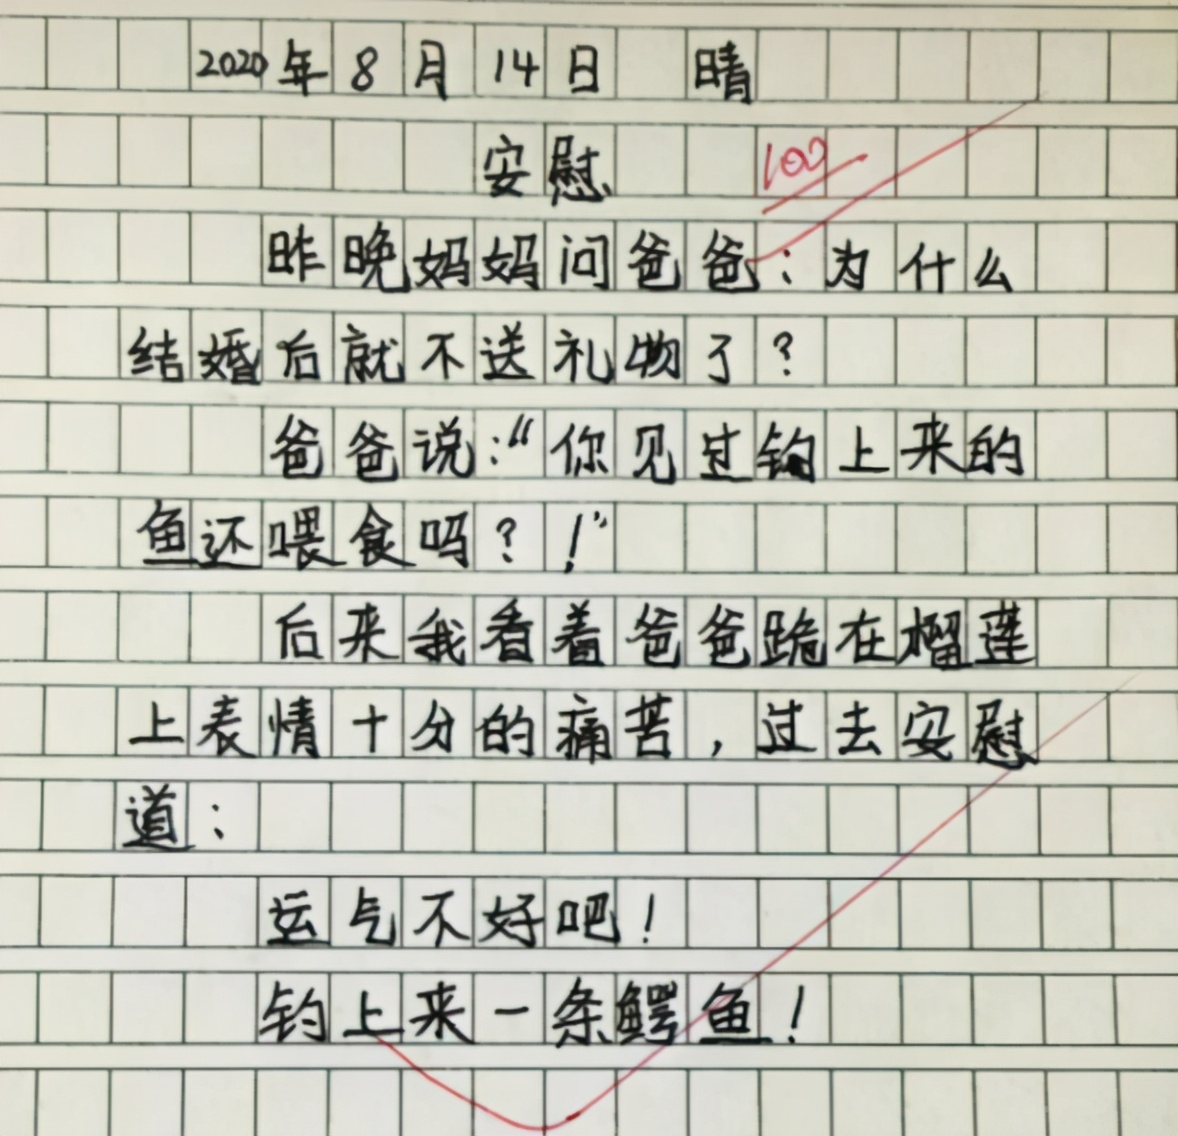 2020年8月14日 晴
安慰 100
昨晚妈妈问爸爸:为什么
结婚后就不送礼物了?
爸爸说:“你见过钓上来的
鱼还喂食吗?!”
后来我看着爸爸跪在榴莲
上表情十分的痛苦,过去安慰
道:
运气不好吧!
钓上来一条鳄鱼!